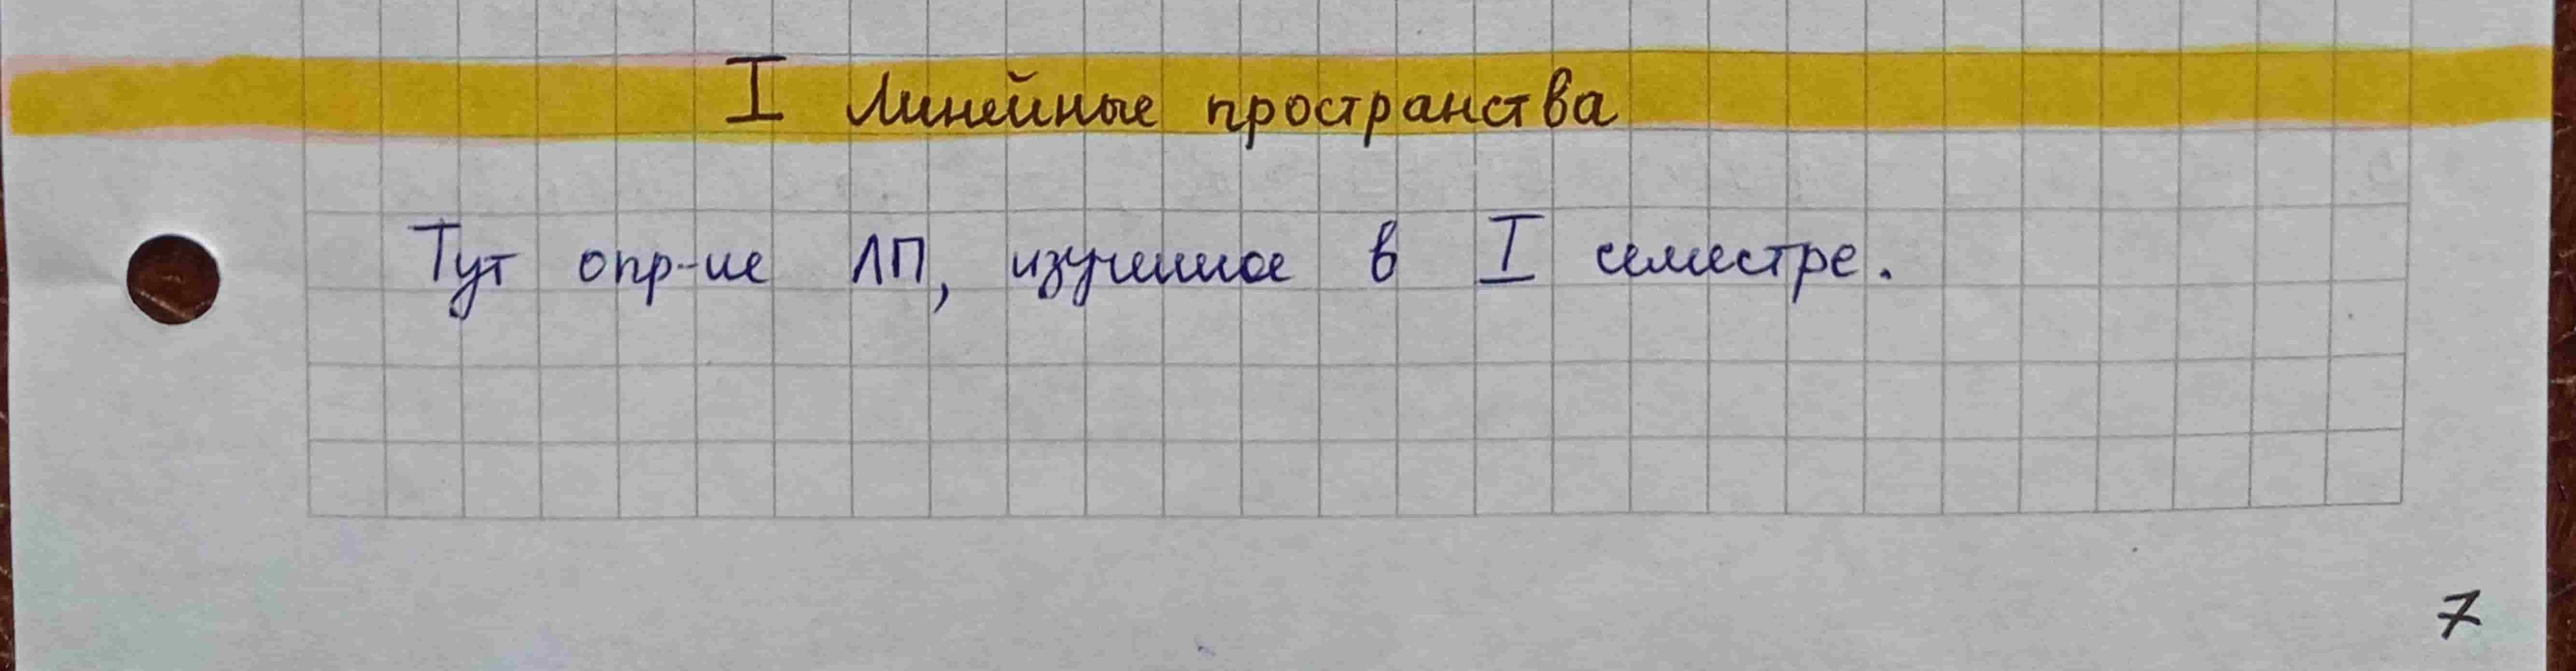 I Линейные пространства
Тут опр-ие ЛП, изученное в I семестре.
7